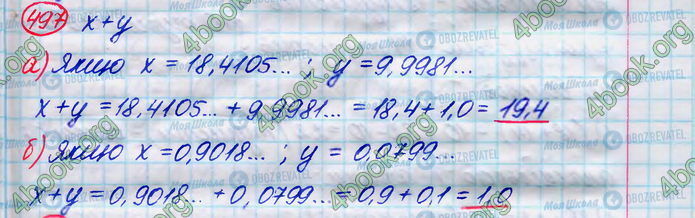 497 x+y
а) Якщо x = 18,4105... ; y = 9,9981...
x+y = 18,4105... + 9,9981... = 18,4 + 1,0 = 19,4
б) Якщо x = 0,9018... ; y = 0,0799...
x+y = 0,9018... + 0,0799... = 0,9 + 0,1 = 1,0